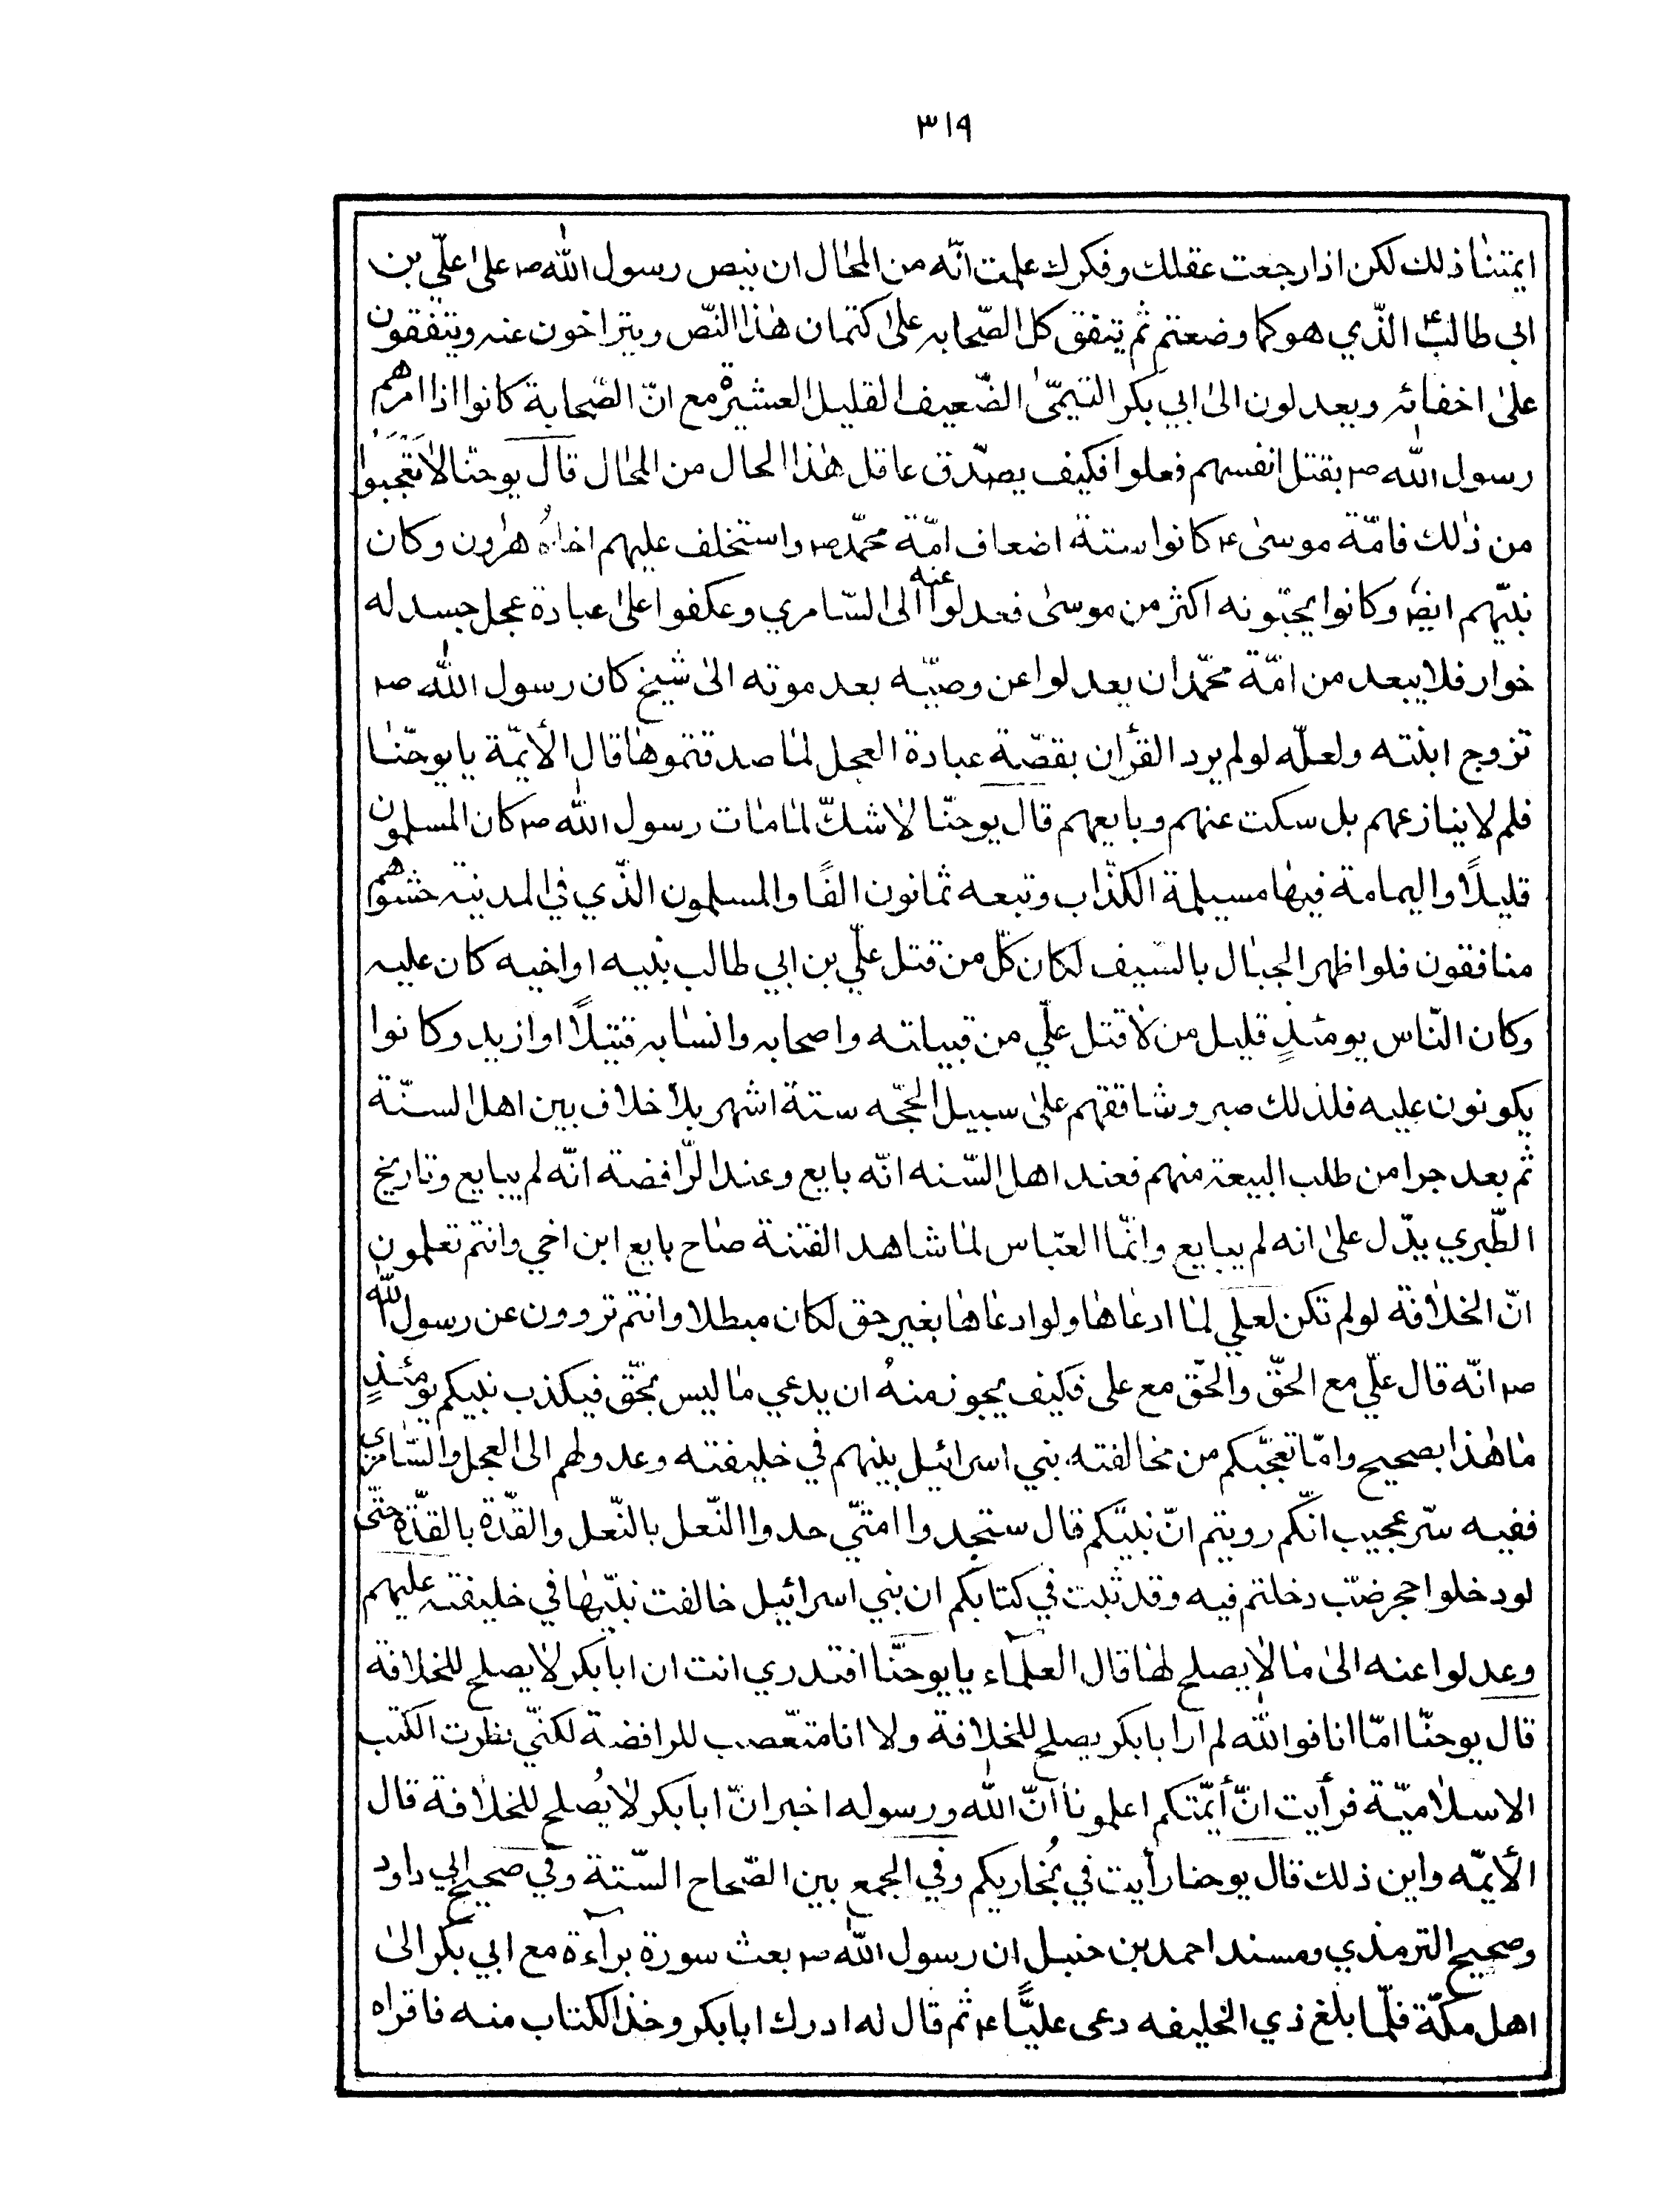 ٣١٩
ايمتنا ذلك لكن اذا رجعت عقلك وفكرك علمت انّه من المحال ان ينص رسول الله ص على علّي بن
ابى طالب ع الذّي هو كما وضعتم ثم يتفق كل الصّحابه علىٰ كتمان هٰذا النّص ويتراخون عنه ويتفقون
علىٰ اخفائه ويعدلون الىٰ ابي بكر التيمّى الضّعيف القليل العشيرة مع انّ الصّحابة كانوا اذا امرهم
رسول الله ص بقتل انفسهم فعلوا فكيف يصدّق عاقل هٰذا الحال من المحال قال يوحنا لا تعجبوا
من ذٰلك فامّة موسىٰ ع كانوا ستة اضعاف امّة محمّد ص واستخلف عليهم اخاهُ هٰرون وكان
نبيّهم ايض وكانوا يحبّونه اكثر من موسىٰ فعدلوا عنه الى السّامري وعكفوا علىٰ عبادة عجل جسد له
خوار فلا يبعد من امّة محمّد ان يعدلوا عن وصيّه بعد موته الىٰ شيخ كان رسول الله ص
تزوج ابنته ولعلّه لو لم يرد القرأن بقصّة عبادة العجل لما صدقتموها قال الأيمّة يا يوحّنا
فلم لا ينازعهم بل سكت عنهم وبايعهم قال يوحنّا لا شكّ لما مات رسول الله ص كان المسلمون
قليلًا واليمامة فيها مسيلمة الكذّاب وتبعه ثمانون الفًا والمسلمون الذّي في المدينه حشوهم
منافقون فلو اظهر الجبال بالسّيف لكان كلّ من قتل علّي بن ابي طالب بنيه او اخيه كان عليه
وكان النّاس يومئذٍ قليل من لا قتل علّي من قبياته واصحابه وانسابه قتيلًا او ازيد وكانوا
يكونون عليه فلذلك صبر وشاققهم علىٰ سبيل الحجّه ستة اشهر بلا خلاف بين اهل السنّة
ثم بعد جرا من طلب البيعة منهم فعند اهل السّنه انّه بايع وعند الرّافضة انّه لم يبايع وتاريخ
الطّبري يدّل علىٰ انه لم يبايع وانمّا العبّاس لما شاهد الفتنة صاح بايع ابن اخي وانتم تعلمون
انّ الخلافة لو لم تكن لعلي لما ادعاها ولو ادعاها بغير حق لكان مبطلا وانتم تروون عن رسول الله
ص انّه قال علّي مع الحقّ والحقّ مع على فكيف يجوز منهُ ان يدعي ما ليس بحقّ فيكذب نبيكم يومئذٍ
ما هٰذا بصحيح وامّا تعجّبكم من مخالفته بني اسرائيل بينهم في خليفته وعدولهم الى العجل والسّامري
ففيه سّر عجيب انّكم رويتم انّ نبيّكم قال ستجدوا امتّي حدوا النّعل بالنّعل والقذّة بالقذّة حتّى
لو دخلوا حجر ضبّ دخلتم فيه وقد ثبت في كتابكم ان بني اسرائيل خالفت نبيّها في خليفته عليهم
وعدلوا عنه الىٰ ما لا يصلح لها قال العلماء يا يوحنّا افتدري انت ان ابا بكر لا يصلح للخلافة
قال يوحنّا امّا انا فوالله لم ار ابا بكر يصلح للخلافة ولا انا متعّصب للرافضة لكنّي نظرت الكتب
الاسلاميّة فرأيت انّ أيمّتكم اعلمونا انّ الله ورسوله اخبر انّ ابا بكر لا يُصلح للخلافة قال
الأيمّه واين ذلك قال يوحنا رأيت في بُخاريكم وفي الجمع بين الصّحاح السّتة وفي صحيح ابي داود
وصحيح الترمذي ومسند احمد بن حنبل ان رسول الله ص بعث سورة برآءة مع ابي بكر الىٰ
اهل مكّة فلمّا بلغ ذي الخليفه دعى عليًّا ع ثم قال له ادرك ابا بكر وخذ الكتاب منه فاقراه